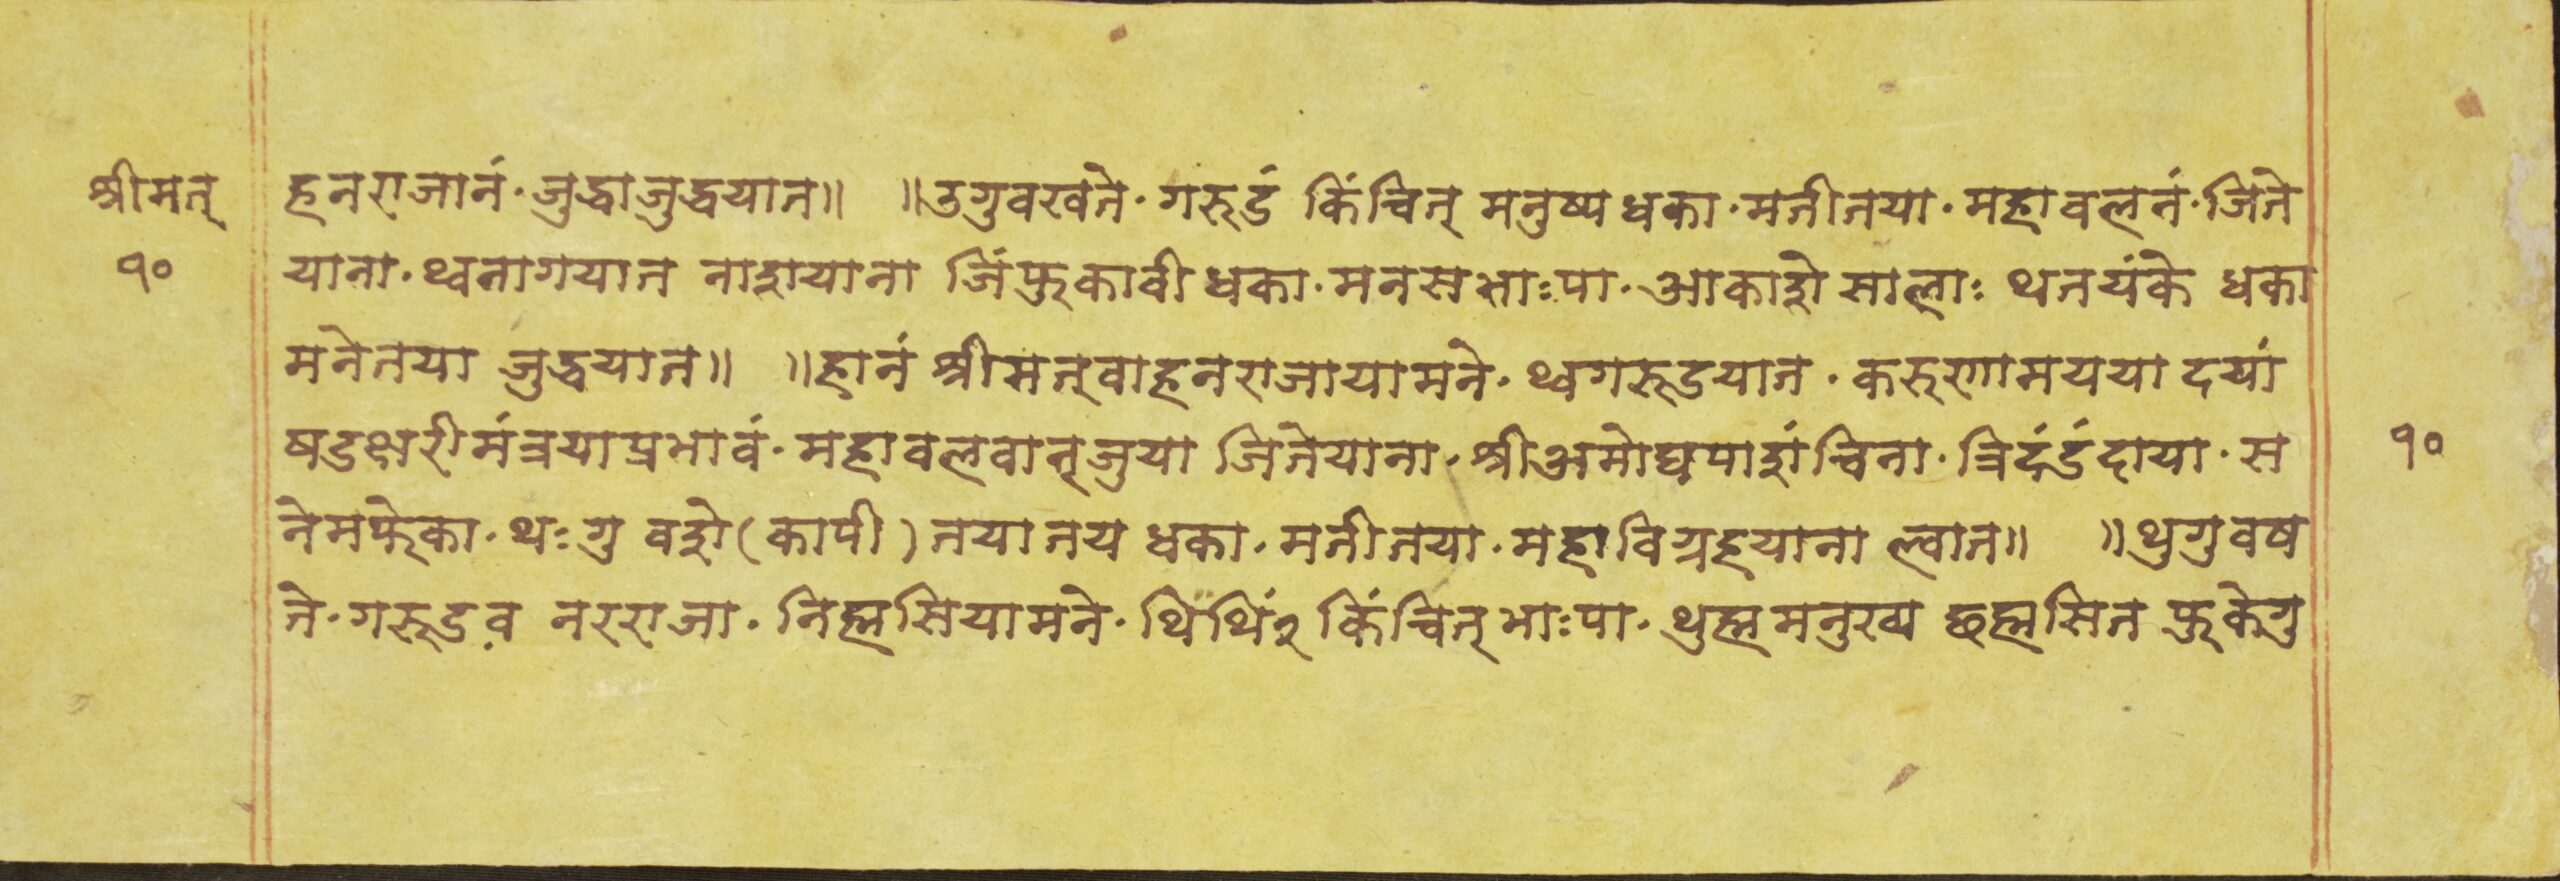 श्रीमत् हनराजानं·जुद्धाजुद्धयात॥ ॥उगुवखते·गरूडं किंचित् मनुष्यधका·मतीतया·महावलनं·जिते
१० याना·थ्वनागयात नाशयाना जिंफुकावीधका·मनसभाःपा·आकाशे सालाः थतयंके धका
मनेतया जुद्धयात॥ ॥हानं श्रीमत्वाहनराजायामने·थ्वगरूडयात·करुणामयया दयां
षडक्षरीमंत्रयाप्रभावं·महावलवात्जुया जितेयाना·श्रीअमोघपाशंचिना·त्रिदंडंदाया·स १०
नेमफेका·थःगु वशे(कापी)तयातय धका·मतीतया·महाविग्रहयाना ल्वात॥ ॥थुगुवष
ते·गरूडव नरराजा·निह्मसियामने·थिथिं२ किंचित्भाःपा·थुह्ममनुख्य छह्मसित फुकेगु